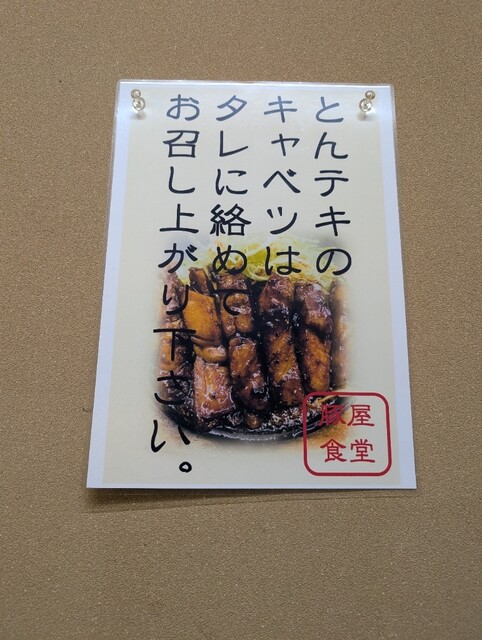 とんテキの
キャベツは
タレに絡めて
お召し上がり下さい。
豚屋
食堂